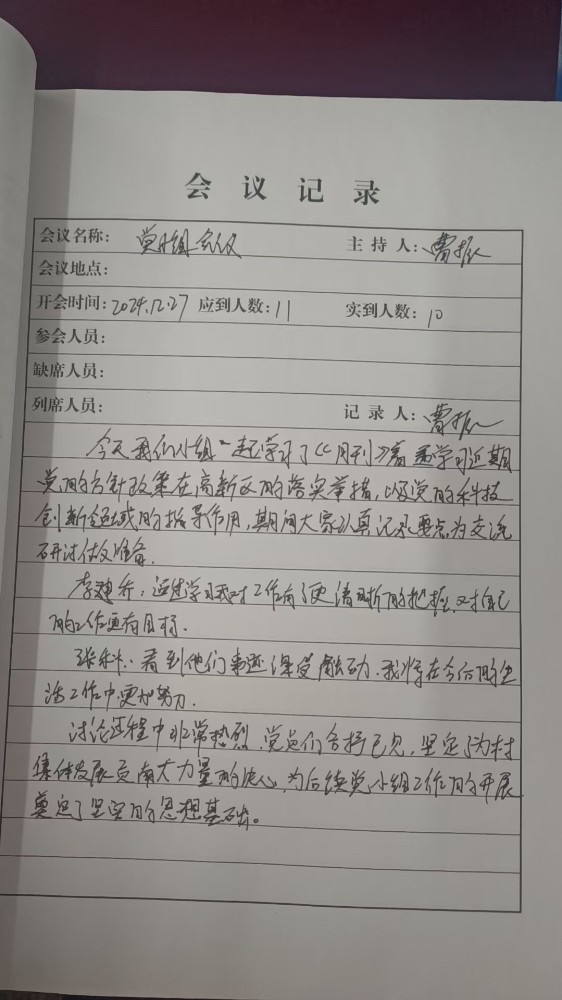 会议记录
会议名称：党小组会议 主持人：曹振
会议地点：
开会时间：2024.12.27 应到人数：11 实到人数：10
参会人员：
缺席人员：
列席人员： 记录人：曹振
今天我们小组一起学习了《月刊》着重学习近期
党的方针政策在高新区的落实举措，以及党的科技
创新领域的指导作用，期间大家认真记录要点，为交流
研讨做准备。
李建乔：通过学习我对工作有了更清晰的把握，对自己
的工作更有目标。
张科：看到他们事迹深受触动，我将在今后的生
活工作中更加努力。
讨论过程中非常热烈，党员们各抒己见，坚定了为村
集体发展贡献大力量的决心，为后续党小组工作的开展
奠定了坚实的思想基础。